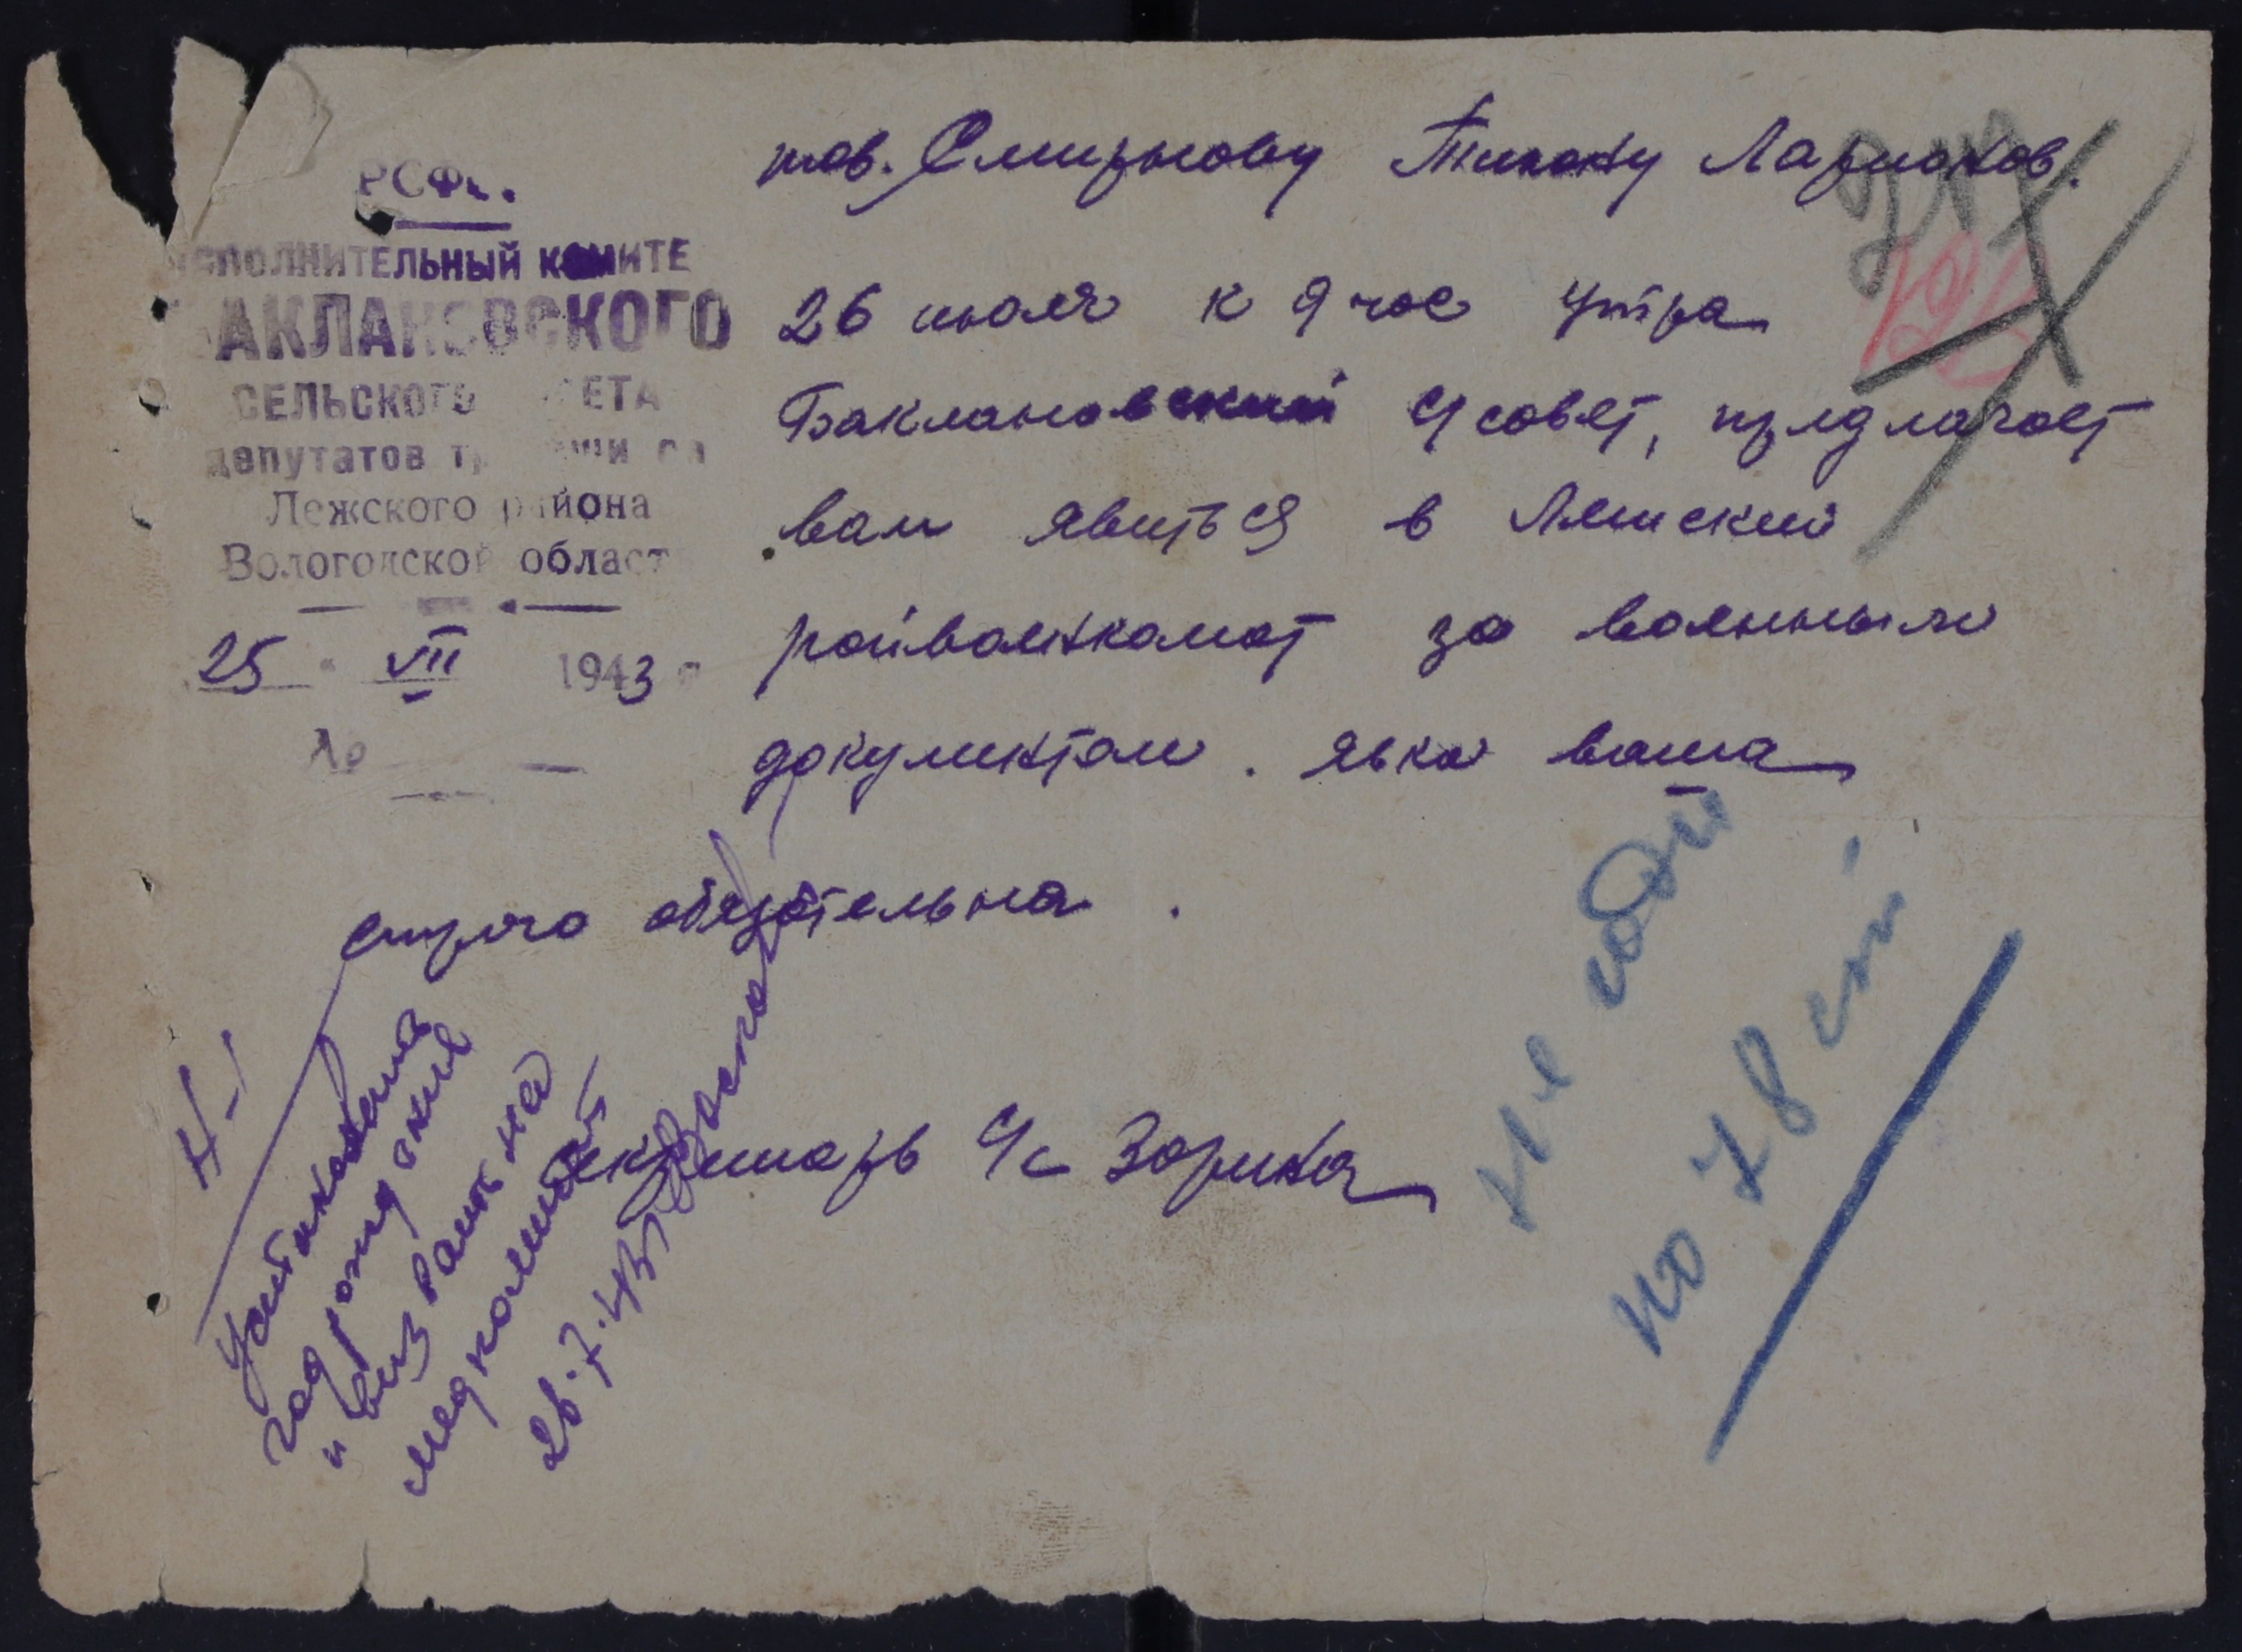 РСФС
ИСПОЛНИТЕЛЬНЫЙ КОМИТЕ
БАКЛАНОВСКОГО
СЕЛЬСКОГО СОВЕТА
депутатов трудящихся
Лежского района
Вологодской област
25 " VII 1943 г
№
тов. Смирнову Тихону Ларионов.
26 июля к 9 час утра
Баклановский с/совет, предлагает
вам явиться в Лежский
райвоенкомат за военными
документам. явка ваша
строго обязательна.
Секретарь с/с Зорина
Н-1
Установить
год рождения
и вызвать на
медкомиссию
26.7.43
Не годен
по 78 ст